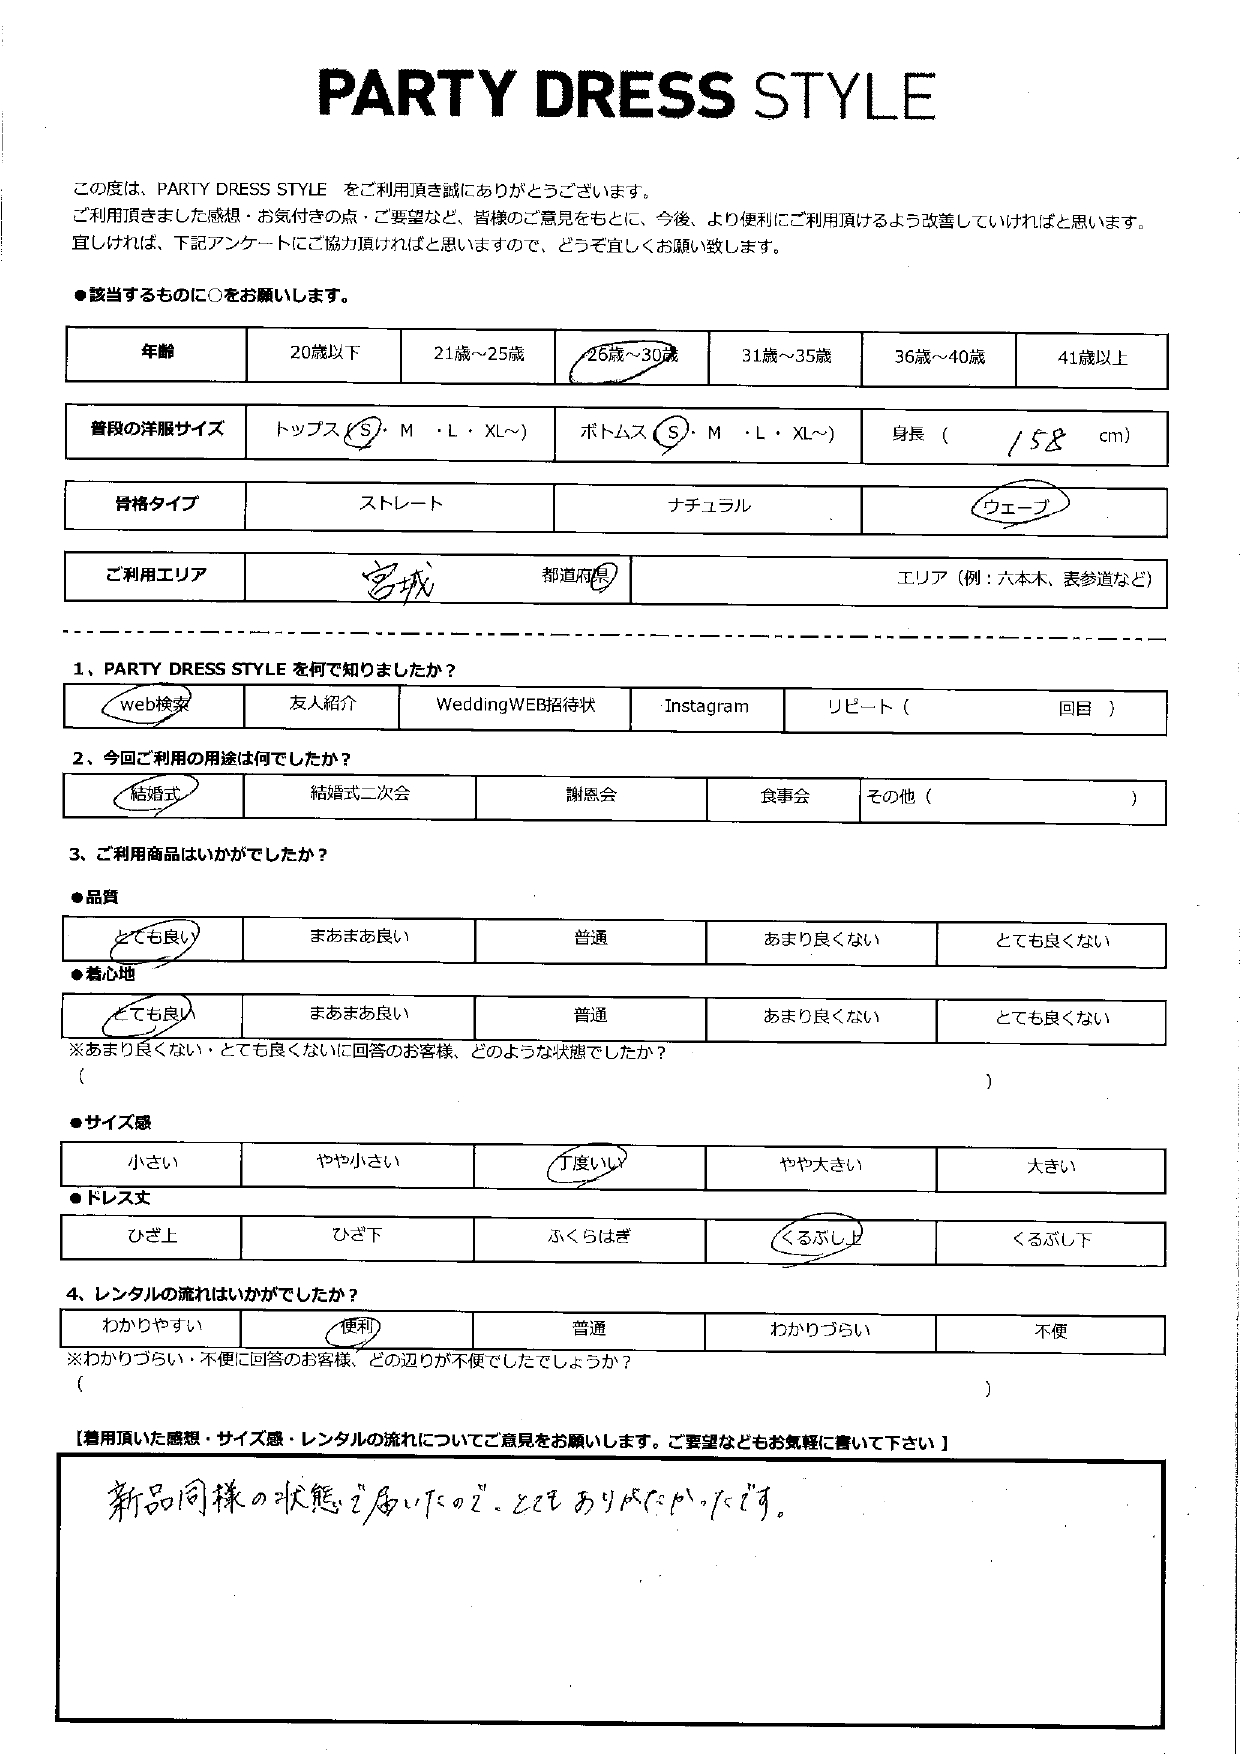 PARTY DRESS STYLE
この度は、PARTY DRESS STYLE をご利用頂き誠にありがとうございます。
ご利用頂きました感想・お気付きの点・ご要望など、皆様のご意見をもとに、今後、より便利にご利用頂けるよう改善していければと思います。
宜しければ、下記アンケートにご協力頂ければと思いますので、どうぞ宜しくお願い致します。
●該当するものに○をお願いします。
年齢 20歳以下 21歳～25歳 26歳～30歳 31歳～35歳 36歳～40歳 41歳以上
普段の洋服サイズ トップス (S・ M ・L・ XL～) ボトムス (S・ M ・L・ XL～) 身長 ( 158 cm)
骨格タイプ ストレート ナチュラル ウェーブ
ご利用エリア 宮城 都道府県 エリア（例：六本木、表参道など）
1、PARTY DRESS STYLE を何で知りましたか？
web検索 友人紹介 WeddingWEB招待状 Instagram リピート ( 回目 )
2、今回ご利用の用途は何でしたか？
結婚式 結婚式二次会 謝恩会 食事会 その他 ( )
3、ご利用商品はいかがでしたか？
●品質
とても良い まあまあ良い 普通 あまり良くない とても良くない
●着心地
とても良い まあまあ良い 普通 あまり良くない とても良くない
※あまり良くない・とても良くないに回答のお客様、どのような状態でしたか？
( )
●サイズ感
小さい やや小さい 丁度いい やや大きい 大きい
●ドレス丈
ひざ上 ひざ下 ふくらはぎ くるぶし上 くるぶし下
4、レンタルの流れはいかがでしたか？
わかりやすい 便利 普通 わかりづらい 不便
※わかりづらい・不便に回答のお客様、どの辺りが不便でしたでしょうか？
( )
【着用頂いた感想・サイズ感・レンタルの流れについてご意見をお願いします。ご要望などもお気軽に書いて下さい 】
新品同様の状態で届いたので、とてもありがたかったです。